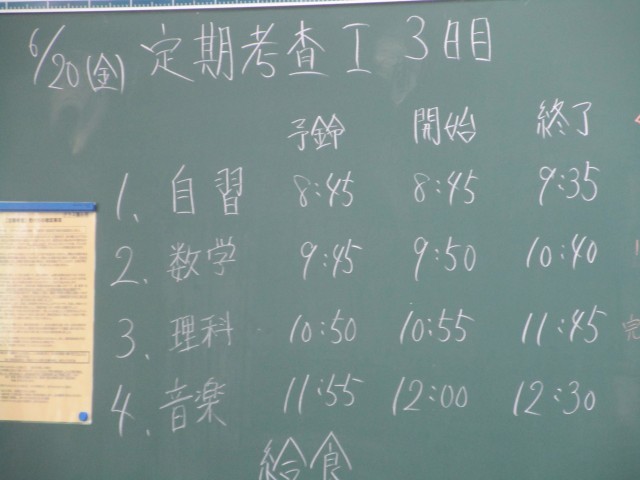 6/20(金) 定期考査I 3日目
予鈴 開始 終了
1、自習 8:45 8:45 9:35
2、数学 9:45 9:50 10:40
3、理科 10:50 10:55 11:45
4、音楽 11:55 12:00 12:30
給食
完